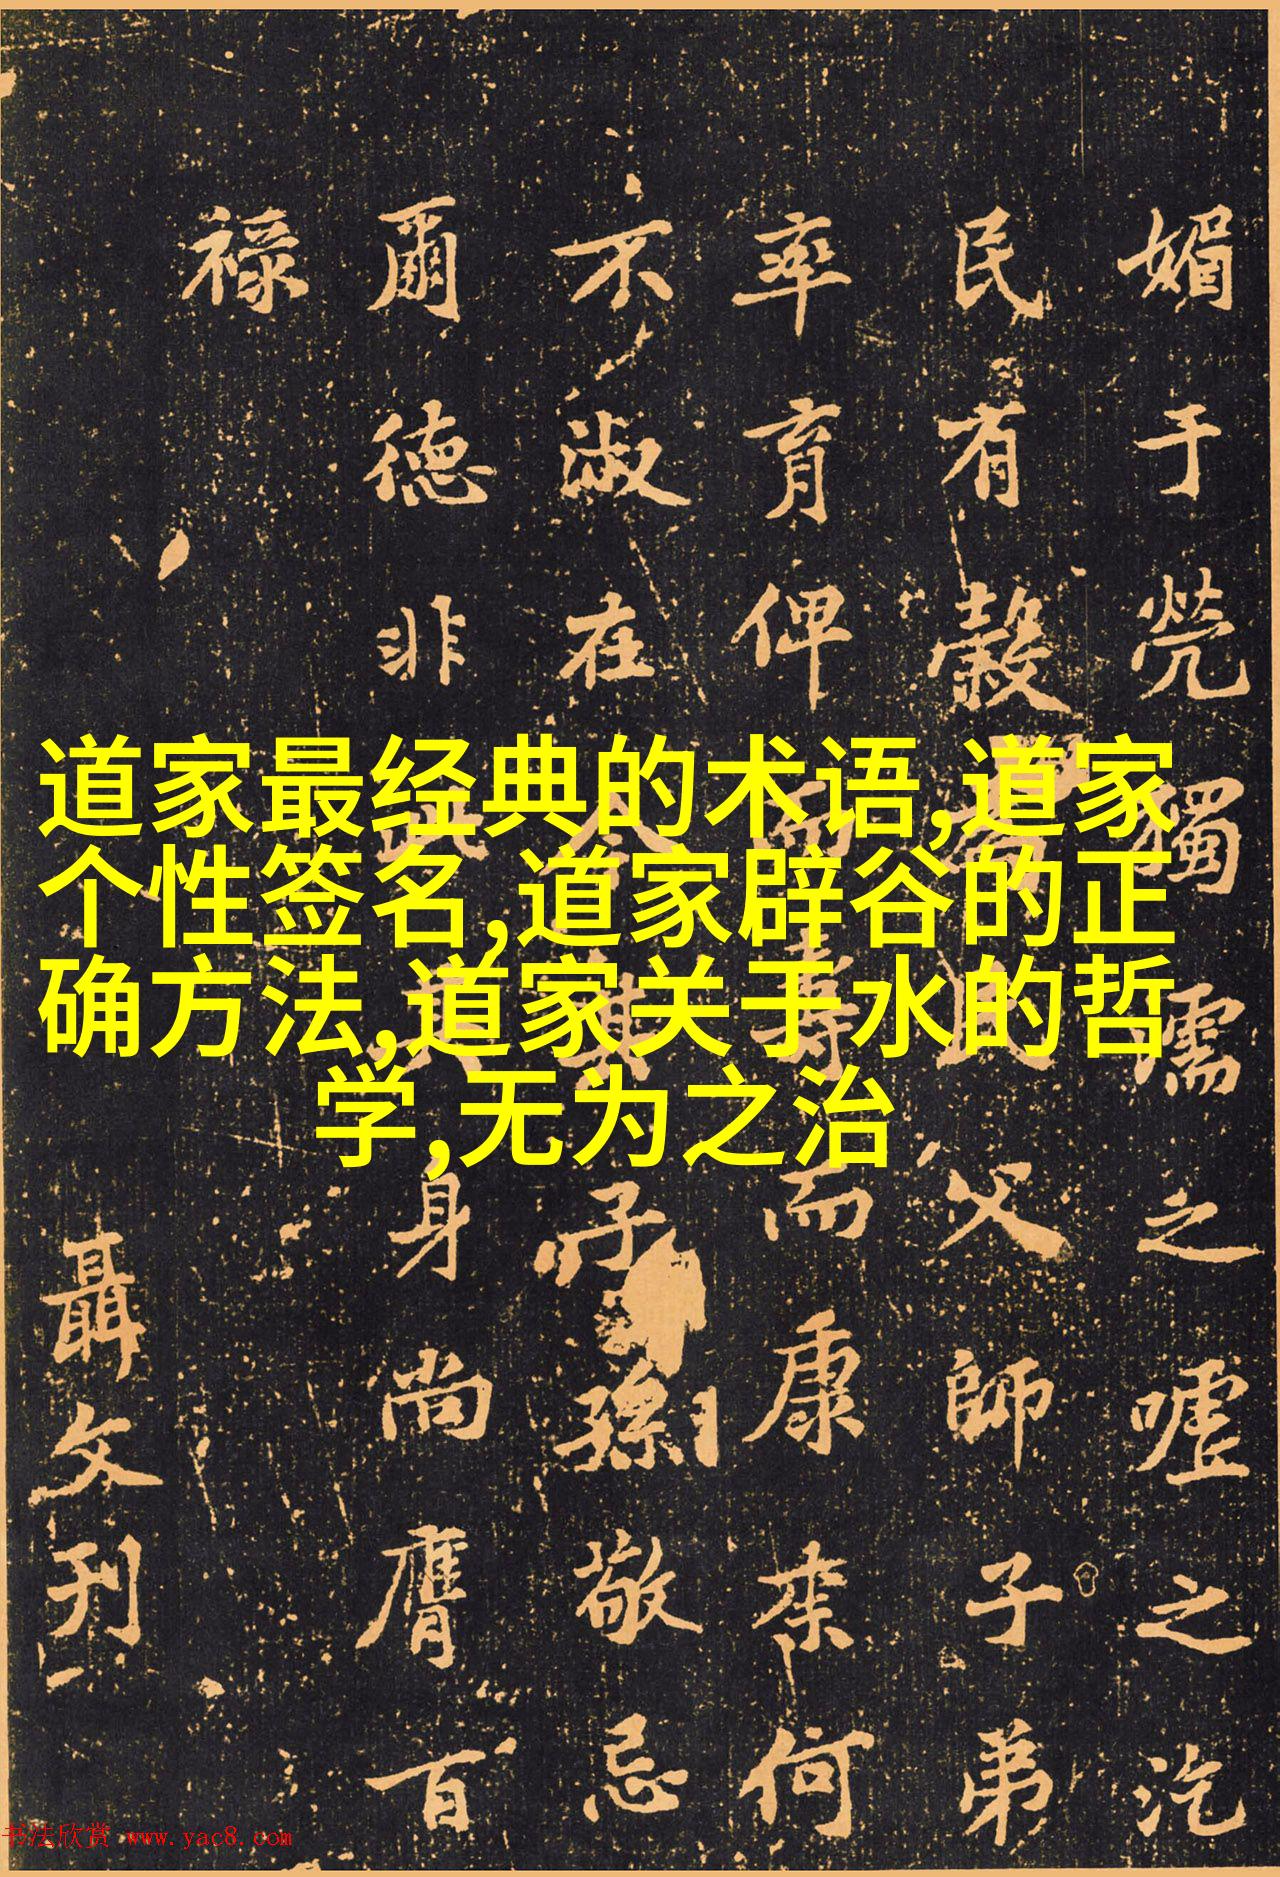 道家最经典的术语,道家
个性签名,道家辟谷的正
确方法,道家关于水的哲
学,无为之治
媚于煢獨濡之嘘之汔
民有穀父師子弟
率育俾壽而康来何
不淑在今其子孫敬忌
爾德非身尚膺百
禄
聶文刊
书法欣赏 www.yac8.com